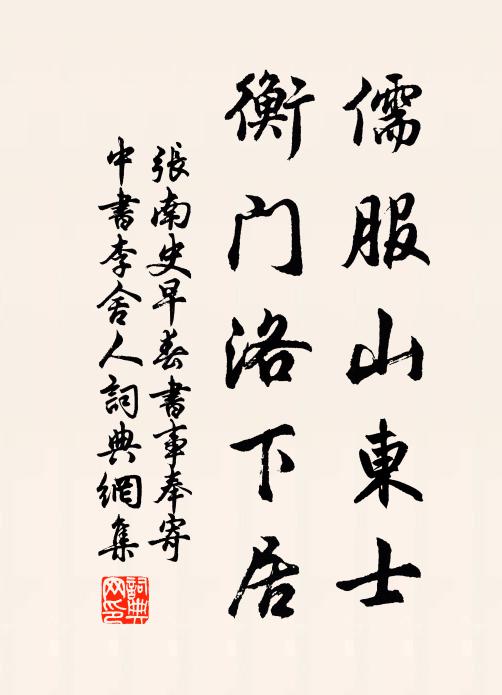 儒服山東士
衡门洛下居
張南史早春書事奉寄
中書李舍人詞典網集
詞典网印